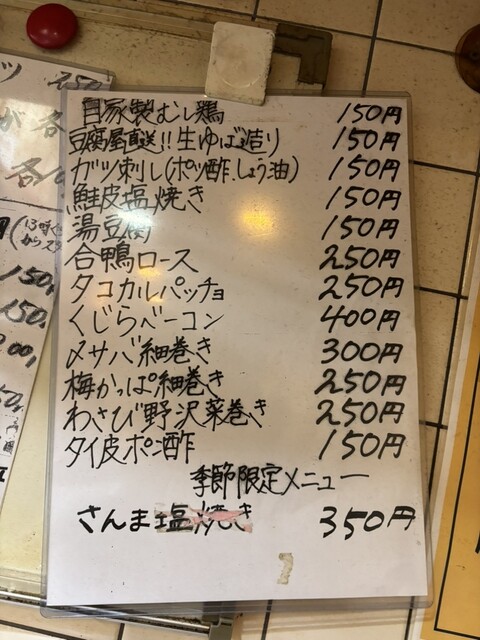 自家製むし鶏 150円
豆腐屋直送!!生ゆば造り 150円
ガツ刺し(ポン酢.しょう油) 150円
鮭皮塩焼き 150円
湯豆腐 150円
合鴨ロース 250円
タコカルパッチョ 250円
くじらベーコン 400円
〆サバ細巻き 300円
梅かっぱ細巻き 250円
わさび野沢菜巻き 250円
タイ皮ポン酢 150円
季節限定メニュー
さんま塩焼き 350円
150
150